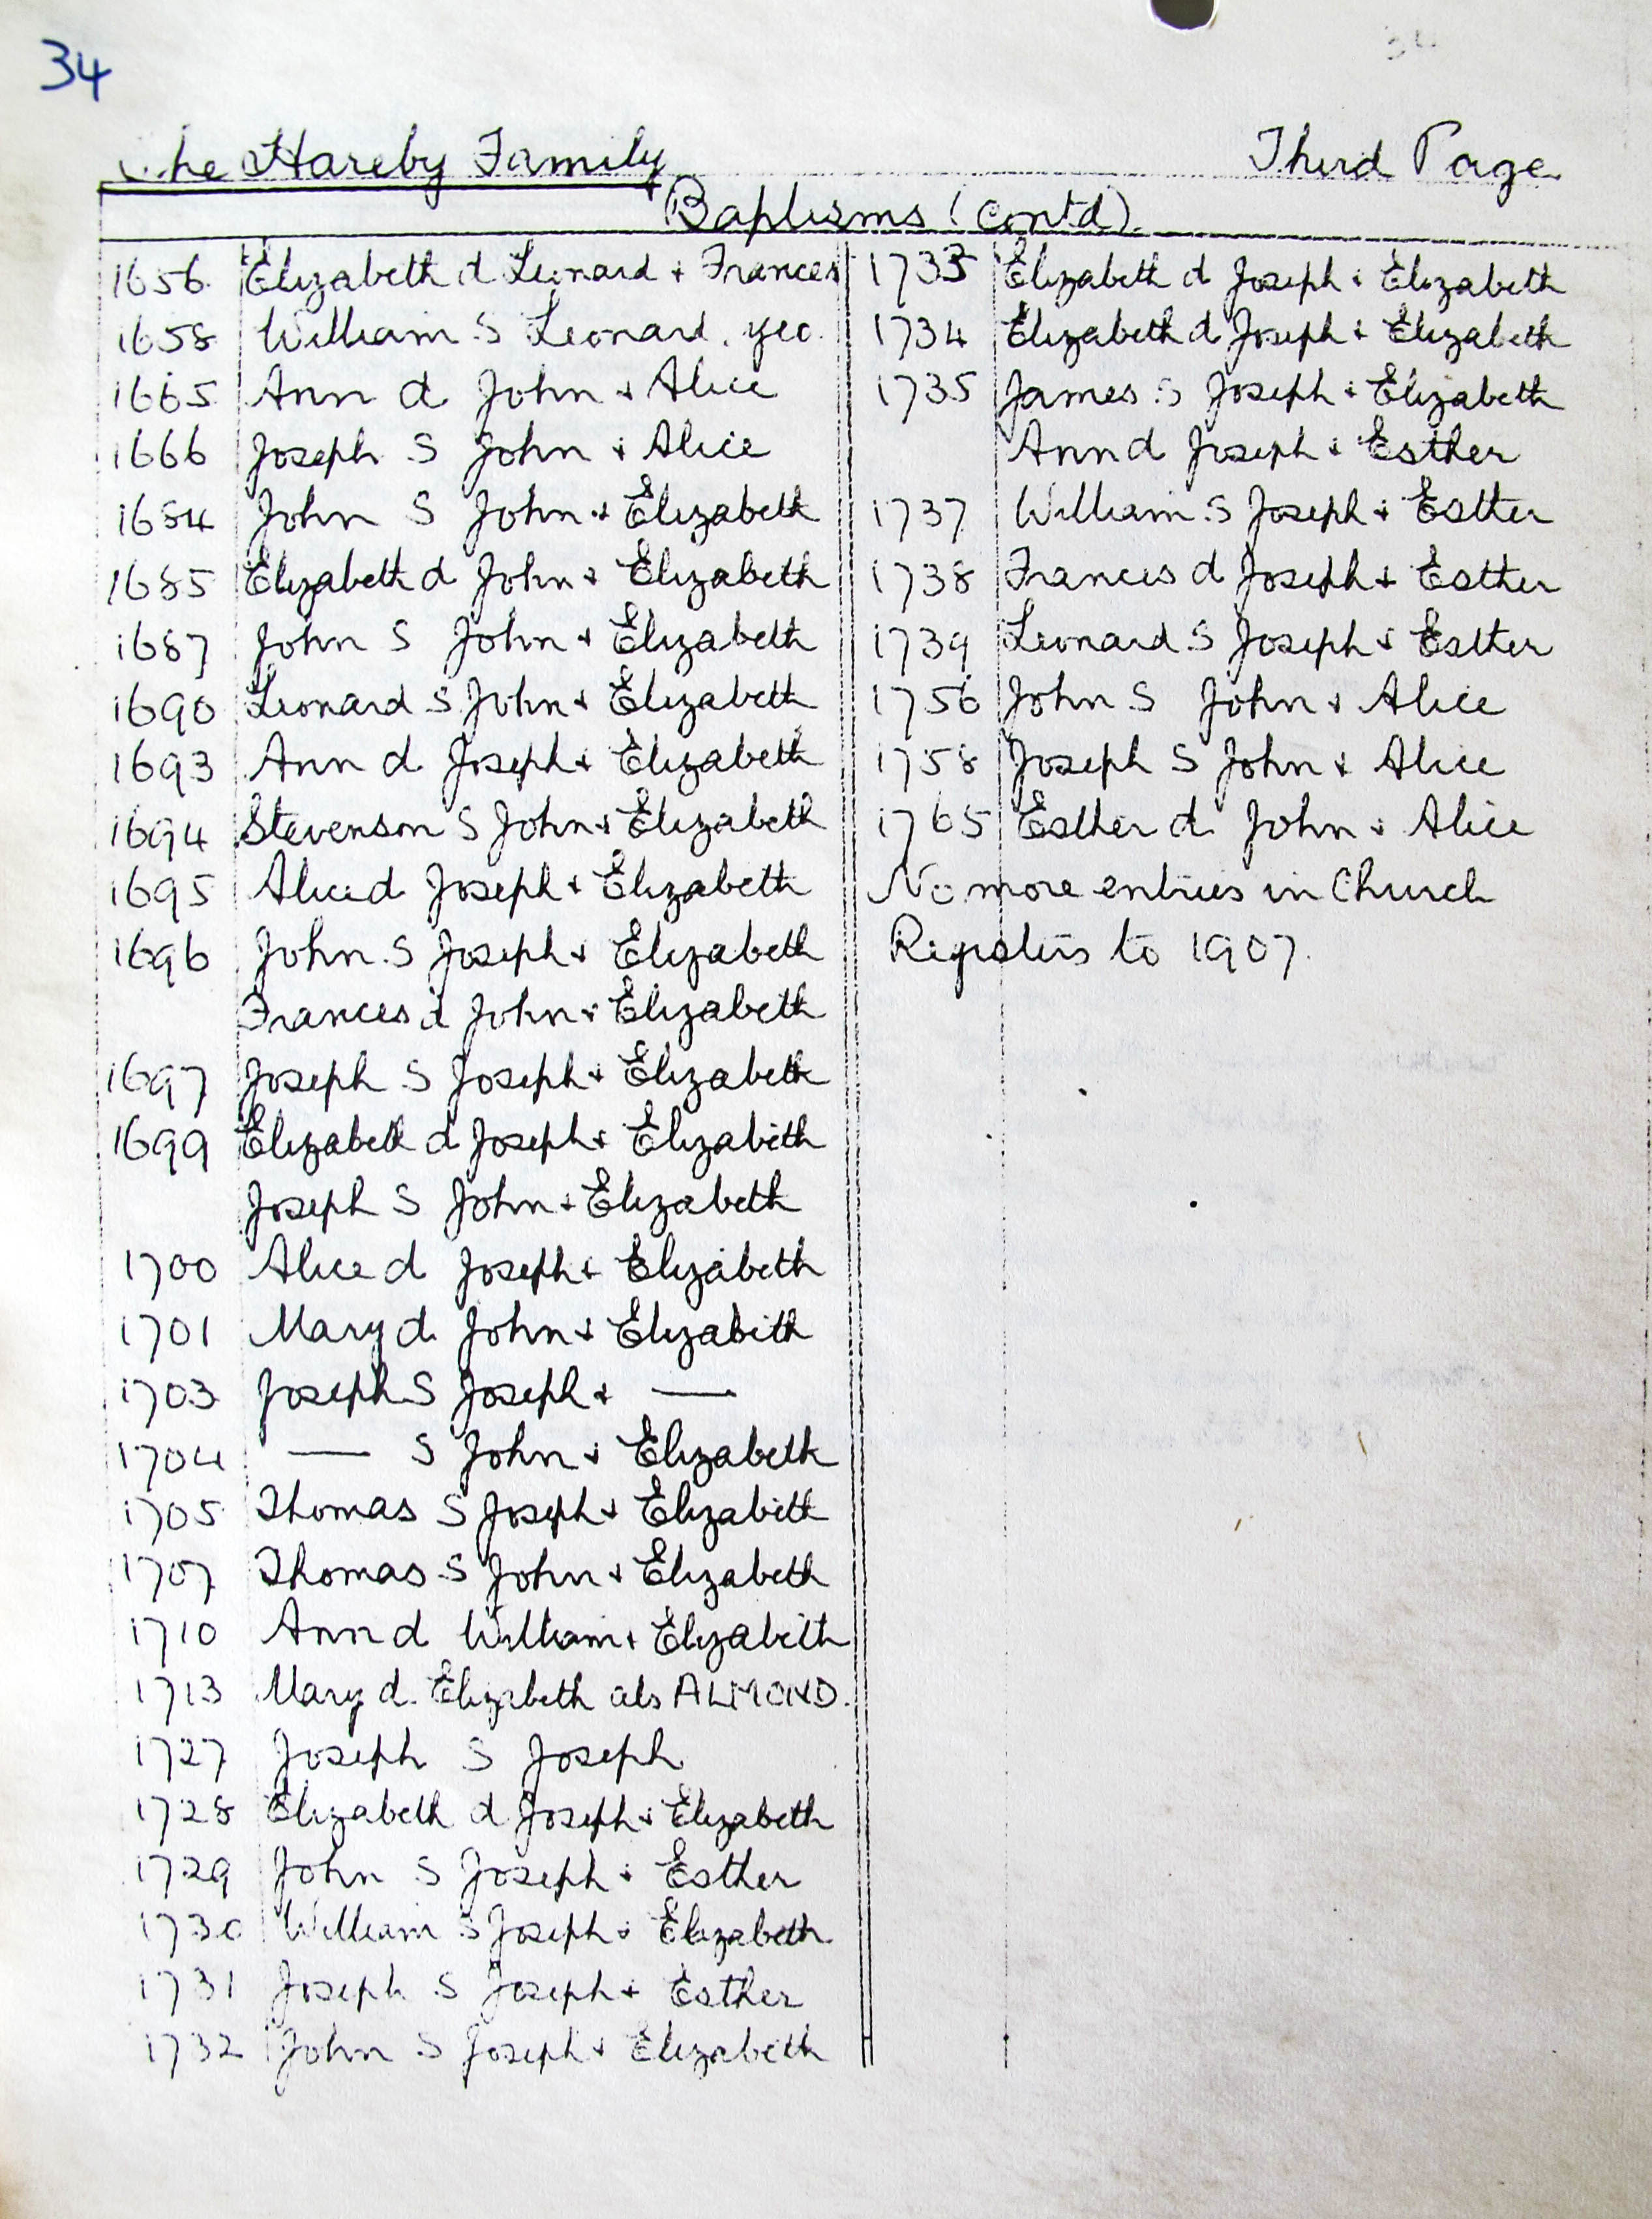 34
The Hareby Family
Third Page
Baptisms (contd).
1656 Elizabeth d Leonard + Frances
1658 William S Leonard, yeo.
1665 Ann d John + Alice
1666 Joseph S John + Alice
1684 John S John + Elizabeth
1685 Elizabeth d John + Elizabeth
1687 John S John + Elizabeth
1690 Leonard S John + Elizabeth
1693 Ann d Joseph + Elizabeth
1694 Stevenson S John + Elizabeth
1695 Alice d Joseph + Elizabeth
1696 John S Joseph + Elizabeth
Frances d John + Elizabeth
1697 Joseph S Joseph + Elizabeth
1699 Elizabeth d Joseph + Elizabeth
Joseph S John + Elizabeth
1700 Alice d Joseph + Elizabeth
1701 Mary d John + Elizabeth
1703 Joseph S Joseph + —
1704 — S John + Elizabeth
1705 Thomas S Joseph + Elizabeth
1707 Thomas S John + Elizabeth
1710 Ann d William + Elizabeth
1713 Mary d. Elizabeth als ALMOND.
1727 Joseph S Joseph
1728 Elizabeth d Joseph + Elizabeth
1729 John S Joseph + Esther
1730 William S Joseph + Elizabeth
1731 Joseph S Joseph + Esther
1732 John S Joseph + Elizabeth
1733 Elizabeth d Joseph + Elizabeth
1734 Elizabeth d Joseph + Elizabeth
1735 James S Joseph + Elizabeth
Ann d Joseph + Esther
1737 William S Joseph + Esther
1738 Frances d Joseph + Esther
1739 Leonard S Joseph + Esther
1756 John S John + Alice
1758 Joseph S John + Alice
1765 Esther d John + Alice
No more entries in Church
Registers to 1907.